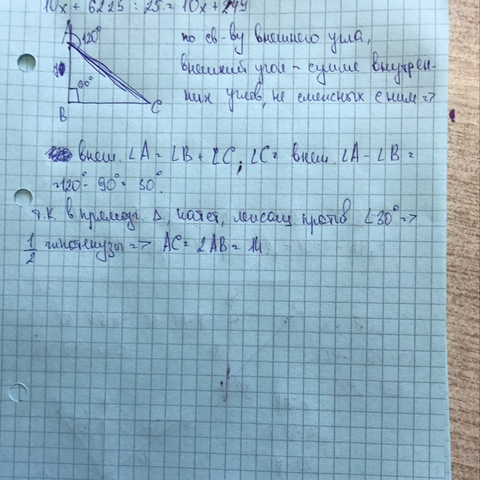 10x + 6225 : 25 = 10x + 249
A 120°
90°
B C
по св-ву внешнего угла,
внешний угол - сумме внутрен-
них углов, не смежных с ним =>
внеш. ∠A = ∠B + ∠C; ∠C = внеш. ∠A - ∠B =
= 120° - 90° = 30°.
т.к. в прямоуг. Δ катет, лежащ против ∠30° =>
1/2 гипотенузы => AC = 2AB = 14.